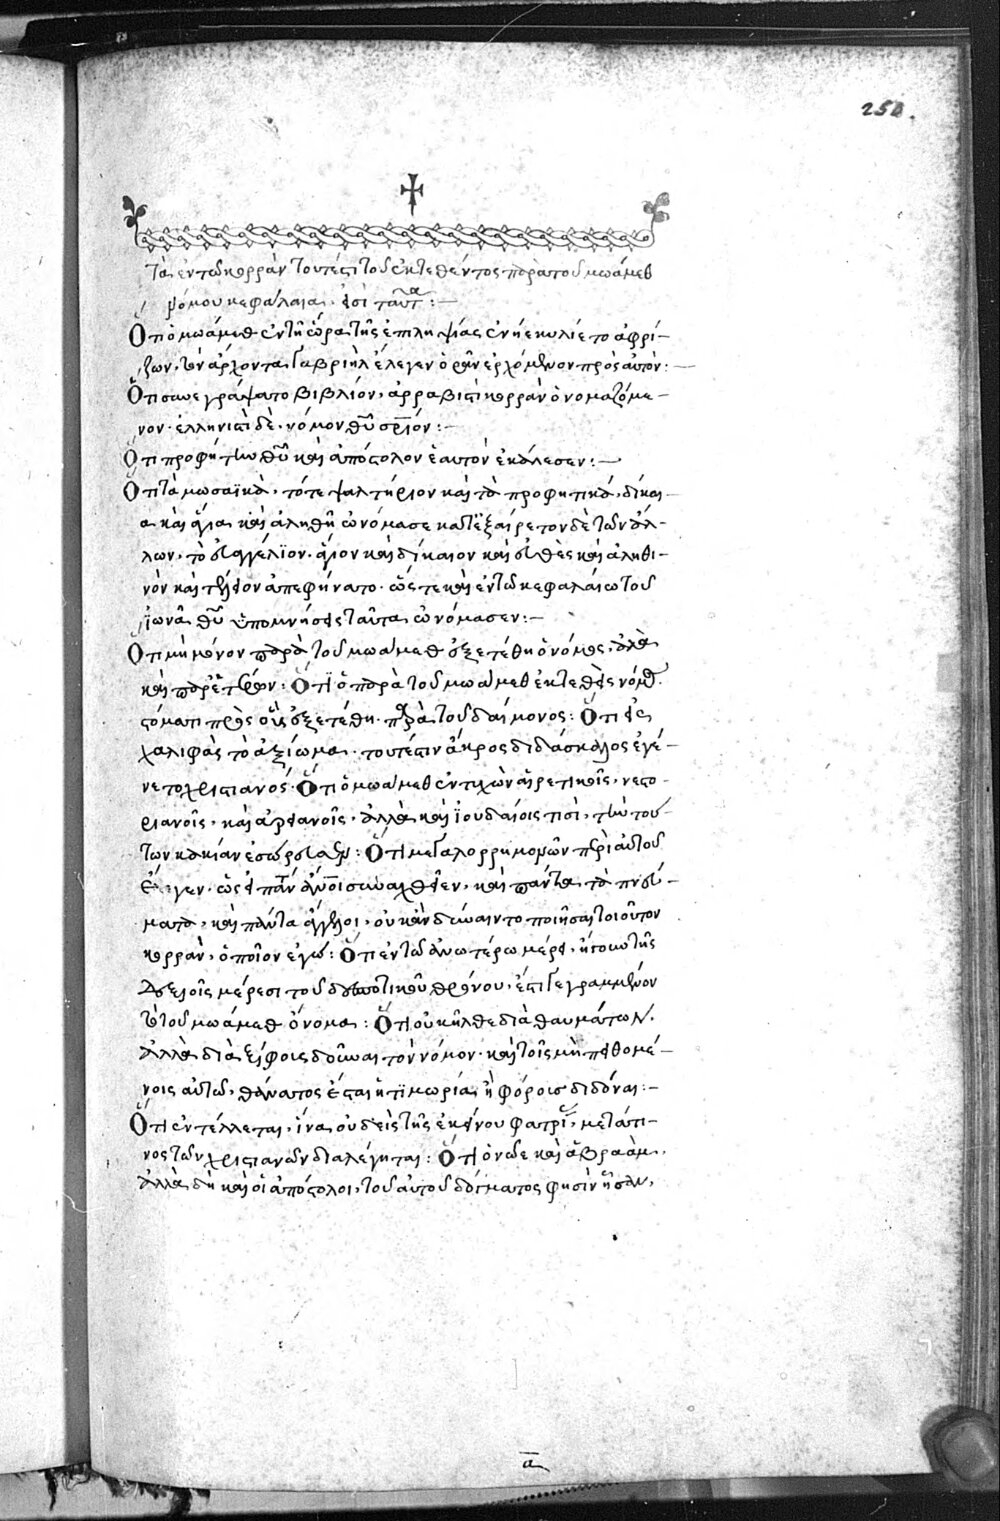 250.
Τὰ ἐν τῶ κορρὰν τουτέστι τοῦ ἐκτεθέντος παρὰ τοῦ μωάμεθ
νόμου κεφάλαια· εἰσὶ ταῦτα:—
Ὅτι ὁ μωάμεθ ἐν τῆ ὥρα τῆς ἐπιληψίας ἐν ἧ ἐκυλίετο ἀφρί-
ζων, τὸν ἄρχοντα γαβριὴλ ἔλεγεν ὁρᾶν ἐρχόμενον πρὸς αὐτόν:—
Ὅτι συνεγράψατο βιβλίον, ἀρραβιστὶ κορρὰν ὀνομαζόμε-
νον· ἑλληνιστὶ δὲ, νόμον θῦ σριόν:—
Ὅτι προφήτην θῦ καὶ ἀπόστολον ἑαυτὸν ἐκάλεσεν:—
Ὅτι τὰ μωσαϊκὰ, τό τε ψαλτήριον καὶ τὰ προφητικὰ, δίκαι-
α καὶ ἅγια καὶ ἀληθῆ ὠνόμασε κατ' ἐξαίρετον δὲ τῶν ἄλ-
λων, τὸ εὐαγγέλιον· ἅγιον καὶ δίκαιον καὶ εὐθὲς καὶ ἀληθι-
νὸν καὶ τέλειον ἀπεφήνατο· ὥς τε καὶ ἐν τῶ κεφαλαίω τοῦ
ἰωνᾶ θῦ ὑπομνήσεις ταῦτα ὠνόμασεν:—
Ὅτι μὴ μόνον παρὰ τοῦ μωάμεθ ἐξετέθη ὁ νόμος, ἀλλὰ
καὶ παρ' ἑτέρων: Ὅτι ὁ παρὰ τοῦ μωάμεθ ἐκτεθεὶς νόμος.
στόματι πρὸς οὓς ἐξετέθη· παρὰ τοῦ δαίμονος: Ὅτι εἷς
χαλιφὰς τὸ ἀξίωμα· τουτέστιν ἄκρος διδάσκαλος ἐγέ-
νετο χριστιανός· Ὅτι ὁ μωάμεθ ἐντυχὼν αἱρετικοῖς, νεστο-
ριανοῖς, καὶ ἀρειανοῖς, ἀλλὰ καὶ ἰουδαίοις τισὶ, τὴν τού-
των κακίαν ἐσώρευσεν: Ὅτι μεγαλορρημονῶν περὶ αὑτοῦ
ἔλεγεν· ὡς εἰ πάντες ἄνοι συναχθεῖεν, καὶ πάντα τὰ πνεύ-
ματα, καὶ πάντα ἄγγελοι, οὐκ ἂν δύναιντο ποιῆσαι τοιοῦτον
κορρὰν, ὁποῖον ἐγώ: Ὅτι ἐν τῶ ἀνωτέρω μέρει, ἤτοι ἐν τοῖς
δεξιοῖς μέρεσι τοῦ δεσποτικοῦ θρόνου, ἐστὶ γεγραμμένον
τὸ τοῦ μωάμεθ ὄνομα: Ὅτι οὐκ ἦλθε διὰ θαυμάτων,
ἀλλὰ διὰ ξίφους δοῦναι τὸν νόμον· καὶ τοῖς μὴ πειθομέ-
νοις αὐτῶ, θάνατος ἔσται ἡ τιμωρία, ἢ φόρους διδόναι:—
Ὅτι ἐντέλλεται, ἵνα οὐδεὶς τῆς ἐκείνου φατρίας, μετά τι-
νος τῶν χριστιανῶν διαλέγηται: Ὅτι ὁ νῶε καὶ ἀβραὰμ,
ἀλλὰ δὴ καὶ οἱ ἀπόστολοι, τοῦ αὐτοῦ δόγματος φησὶν ἦσαν,
α